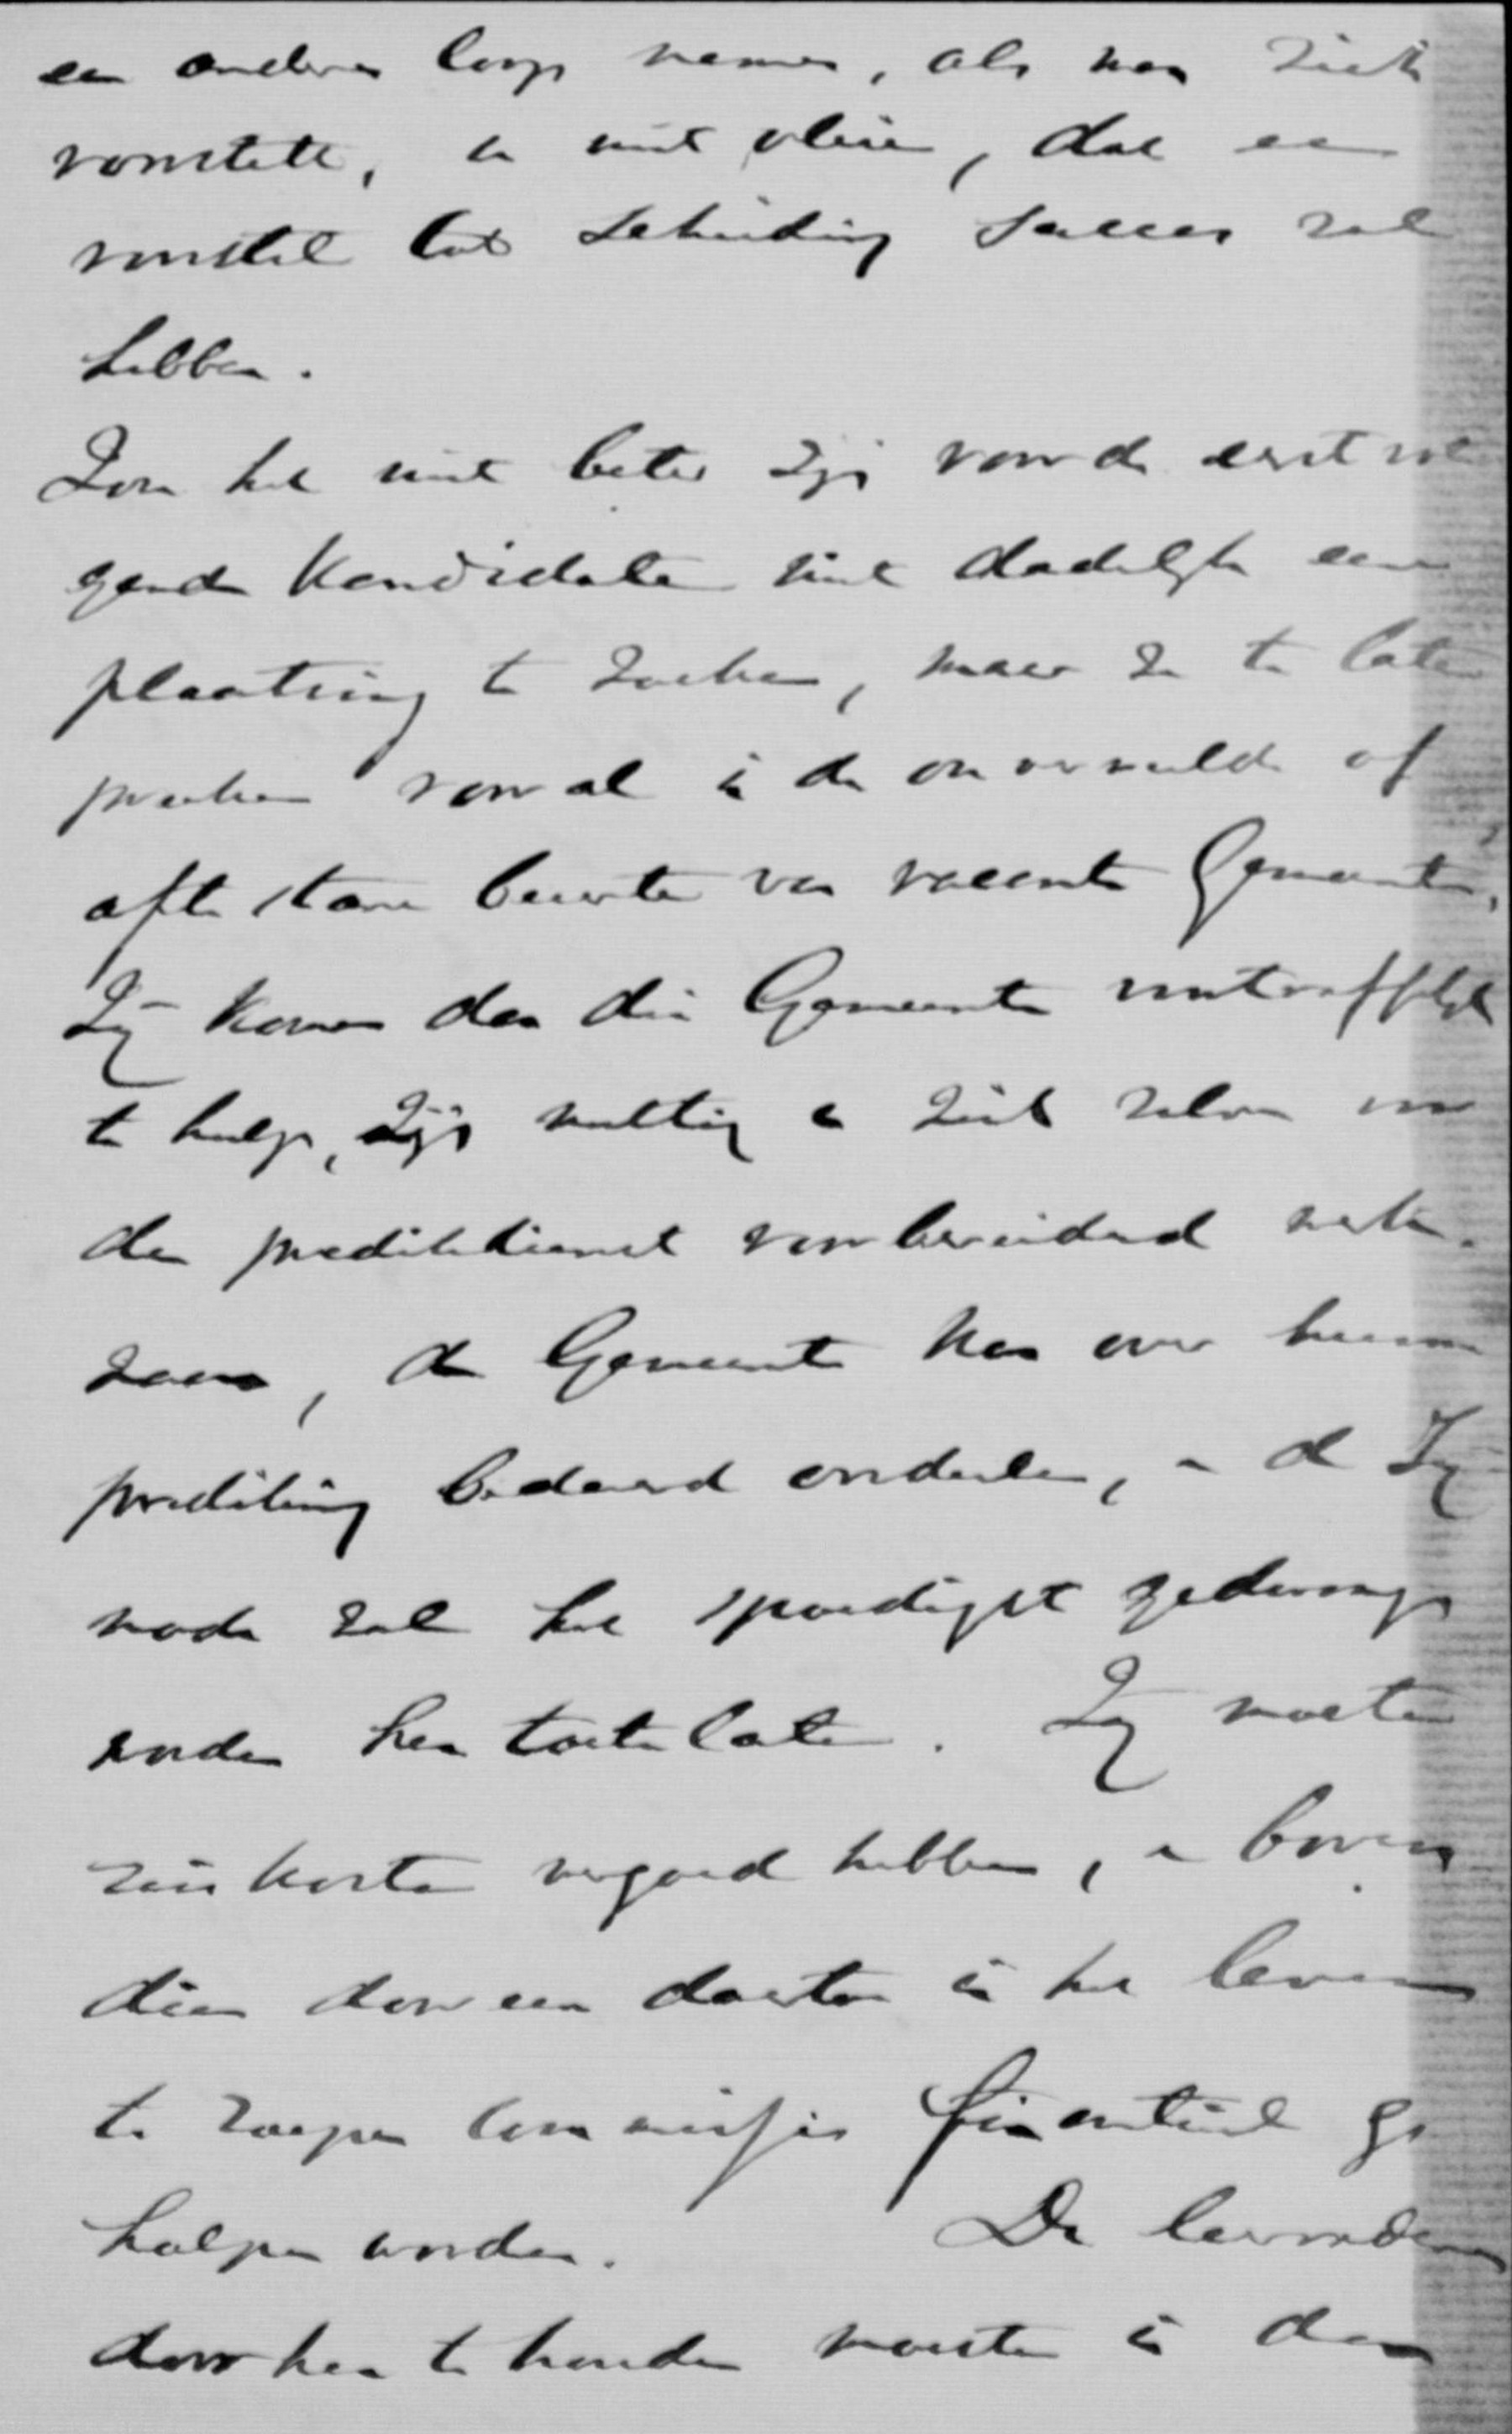 een anderen loop nemen, als men zich
voorstelt, en niet alleen, dat een
voorstel tot scheiding succes zal
hebben.
Zou het niet beter zijn voor de eerstvol
gende Kandidaten niet dadelijk een
plaatsing te zoeken, maar ze te laten
preeken vooral in de onvervulde of
af te stane beurten van vacante Gemeenten,
Zij komen dan die Gemeenten voortreffelijk
te hulp, zijn nuttig en zich zelven voor
den predikdienst voorbereidend werk
zaam, de Gemeente kan over hunne
prediking bedaard oordeelen, en de Sy
node zal het spoedigst gedwongen
worden hen toe te laten. Zij moeten
reiskosten vergoed hebben, en boven
dien door een daartoe in het leven
te roepen Commissie financieel ge
holpen worden. De
door hen te houden moesten in den